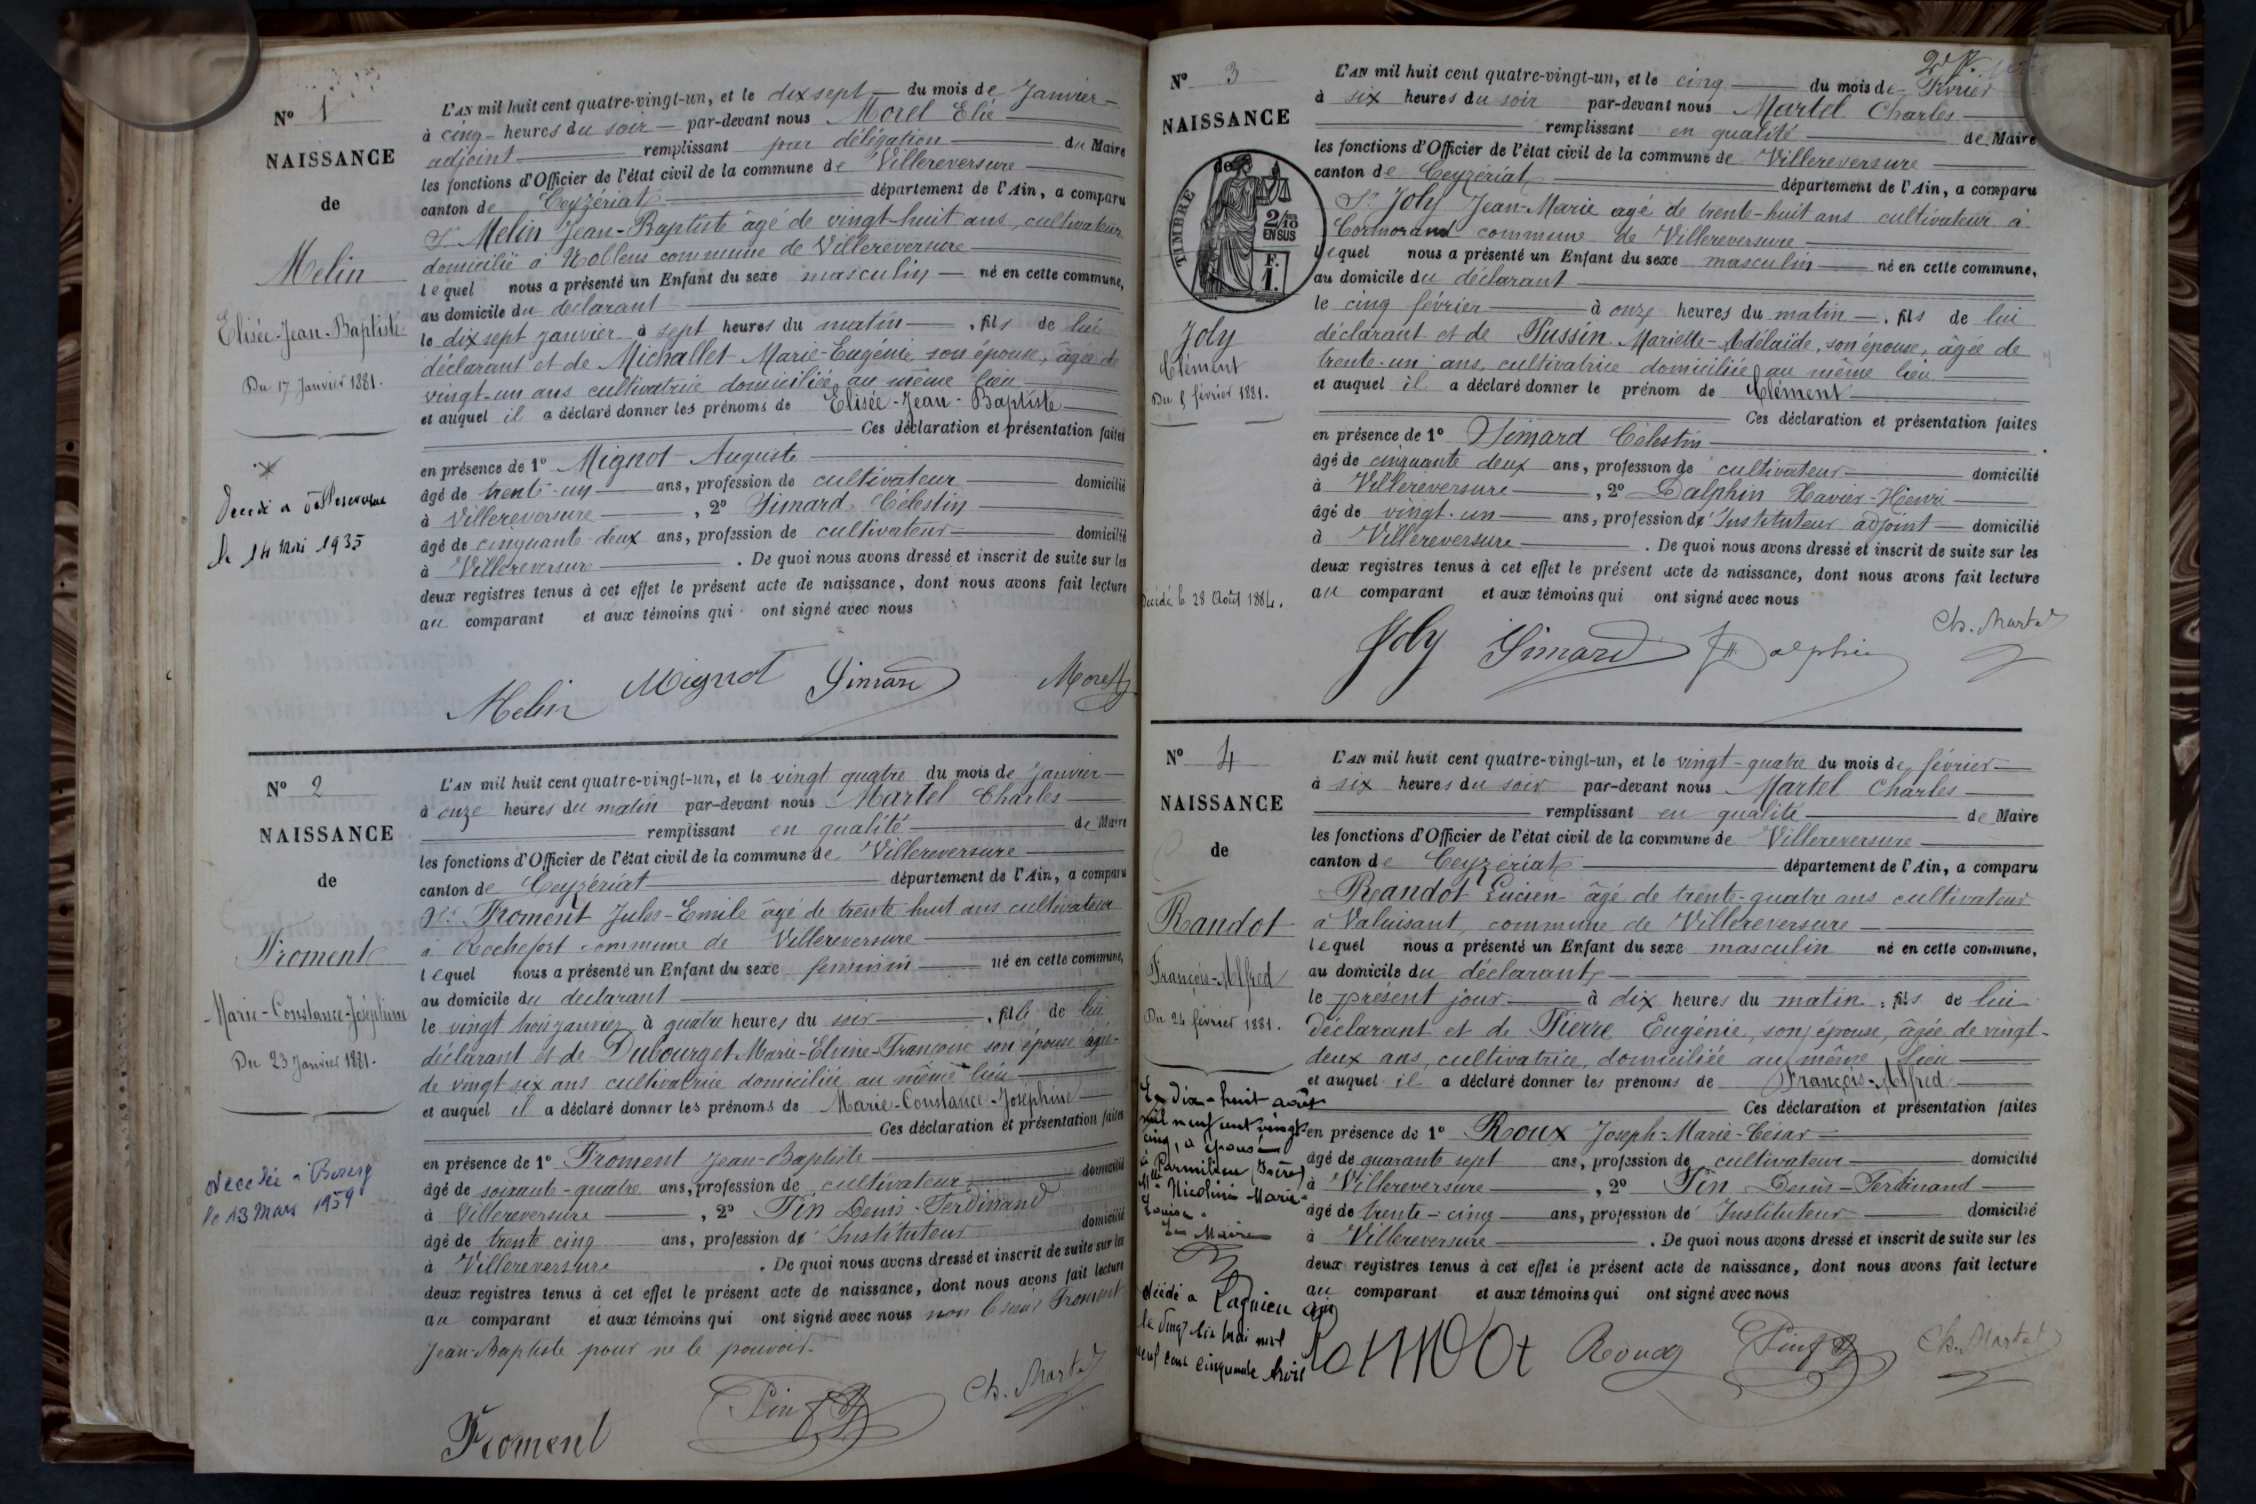 N° 1
NAISSANCE
de
Melin
Elisée-Jean-Baptiste
Du 17 Janvier 1881.
Décédé a Villereversure
le 14 Mai 1935
L'AN mil huit cent quatre-vingt-un, et le dix sept du mois de Janvier
à cinq heures du soir par-devant nous Morel Elie
adjoint remplissant par délégation du Maire
les fonctions d'Officier de l'état civil de la commune de Villereversure
canton de Ceyzériat département de l'Ain, a comparu
Sr Melin Jean-Baptiste âgé de vingt-huit ans, cultivateur
domicilié à Nollens commune de Villereversure
lequel nous a présenté un Enfant du sexe masculin né en cette commune,
au domicile du déclarant
le dix sept janvier à sept heures du matin, fils de lui
déclarant et de Michallet Marie-Eugénie, son épouse, âgée de
vingt-un ans cultivatrice domiciliée au même lieu
et auquel il a déclaré donner les prénoms de Elisée-Jean-Baptiste
Ces déclaration et présentation faites
en présence de 1° Mignot Auguste
âgé de trente-un ans, profession de cultivateur domicilié
à Villereversure, 2° Simard Célestin
âgé de cinquante-deux ans, profession de cultivateur domicilié
à Villereversure. De quoi nous avons dressé et inscrit de suite sur les
deux registres tenus à cet effet le présent acte de naissance, dont nous avons fait lecture
au comparant et aux témoins qui ont signé avec nous
Melin Mignot Simard Morel
N° 2
NAISSANCE
de
Froment
Marie-Constance-Joséphine
Du 23 Janvier 1881.
décédée à Bourg
le 13 Mars 1959
L'AN mil huit cent quatre-vingt-un, et le vingt quatre du mois de Janvier
à onze heures du matin par-devant nous Martel Charles
remplissant en qualité de Maire
les fonctions d'Officier de l'état civil de la commune de Villereversure
canton de Ceyzériat département de l'Ain, a comparu
Sr Froment Jules-Emile âgé de trente huit ans cultivateur
à Rochefort commune de Villereversure
lequel nous a présenté un Enfant du sexe féminin né en cette commune,
au domicile du déclarant
le vingt trois janvier à quatre heures du soir, fille de lui
déclarant et de Dubourget Marie-Elvine-Françoise son épouse âgée
de vingt six ans cultivatrice domiciliée au même lieu
et auquel il a déclaré donner les prénoms de Marie-Constance-Joséphine
Ces déclaration et présentation faites
en présence de 1° Froment Jean-Baptiste
âgé de soixante-quatre ans, profession de cultivateur domicilié
à Villereversure, 2° Pin Denis-Ferdinand
âgé de trente cinq ans, profession d' Instituteur domicilié
à Villereversure. De quoi nous avons dressé et inscrit de suite sur les
deux registres tenus à cet effet le présent acte de naissance, dont nous avons fait lecture
au comparant et aux témoins qui ont signé avec nous non le sieur Froment
Jean-Baptiste pour ne le pouvoir.
Froment Pin Ch. Martel
N° 3
NAISSANCE
de
TIMBRE
2/10
EN SUS
F.
1.
Joly
Clément
Du 5 février 1881.
Décédé le 28 Août 1884.
L'AN mil huit cent quatre-vingt-un, et le cinq du mois de Février
à six heures du soir par-devant nous Martel Charles
remplissant en qualité de Maire
les fonctions d'Officier de l'état civil de la commune de Villereversure
canton de Ceyzériat département de l'Ain, a comparu
Sr Joly Jean-Marie agé de trente-huit ans cultivateur à
Cormorand commune de Villereversure
lequel nous a présenté un Enfant du sexe masculin né en cette commune,
au domicile du déclarant
le cinq février à onze heures du matin, fils de lui
déclarant et de Pussin Mariette-Adélaïde, son épouse, âgée de
trente-un ans, cultivatrice domiciliée au même lieu
et auquel il a déclaré donner le prénom de Clément
Ces déclaration et présentation faites
en présence de 1° Simard Célestin
âgé de cinquante deux ans, profession de cultivateur domicilié
à Villereversure, 2° Dalphin Xavier-Henri
âgé de vingt-un ans, profession d' Instituteur adjoint domicilié
à Villereversure. De quoi nous avons dressé et inscrit de suite sur les
deux registres tenus à cet effet le présent acte de naissance, dont nous avons fait lecture
au comparant et aux témoins qui ont signé avec nous
Joly Simard Dalphin Ch. Martel
N° 4
NAISSANCE
de
Randot
François-Alfred
Du 24 février 1881.
Le dix-huit août
mil neuf cent vingt
cinq, a épousé
à Parmilieu (Isère)
Mlle Nicolini Marie-
Louise.
Le Maire
décédé a Lagnieu Ain
le vingt six Mai mil
neuf cent cinquante trois
L'AN mil huit cent quatre-vingt-un, et le vingt-quatre du mois de février
à six heures du soir par-devant nous Martel Charles
remplissant en qualité de Maire
les fonctions d'Officier de l'état civil de la commune de Villereversure
canton de Ceyzériat département de l'Ain, a comparu
Randot Lucien âgé de trente-quatre ans cultivateur
à Valuisant, commune de Villereversure
lequel nous a présenté un Enfant du sexe masculin né en cette commune,
au domicile du déclarant
le présent jour à dix heures du matin, fils de lui
déclarant et de Pierre Eugénie, son épouse, âgée de vingt-
deux ans, cultivatrice, domiciliée au même lieu
et auquel il a déclaré donner les prénoms de François-Alfred
Ces déclaration et présentation faites
en présence de 1° Roux Joseph-Marie-César
âgé de quarante sept ans, profession de cultivateur domicilié
à Villereversure, 2° Pin Denis-Ferdinand
âgé de trente-cinq ans, profession d' Instituteur domicilié
à Villereversure. De quoi nous avons dressé et inscrit de suite sur les
deux registres tenus à cet effet le présent acte de naissance, dont nous avons fait lecture
au comparant et aux témoins qui ont signé avec nous
Randot Roux Pin Ch. Martel